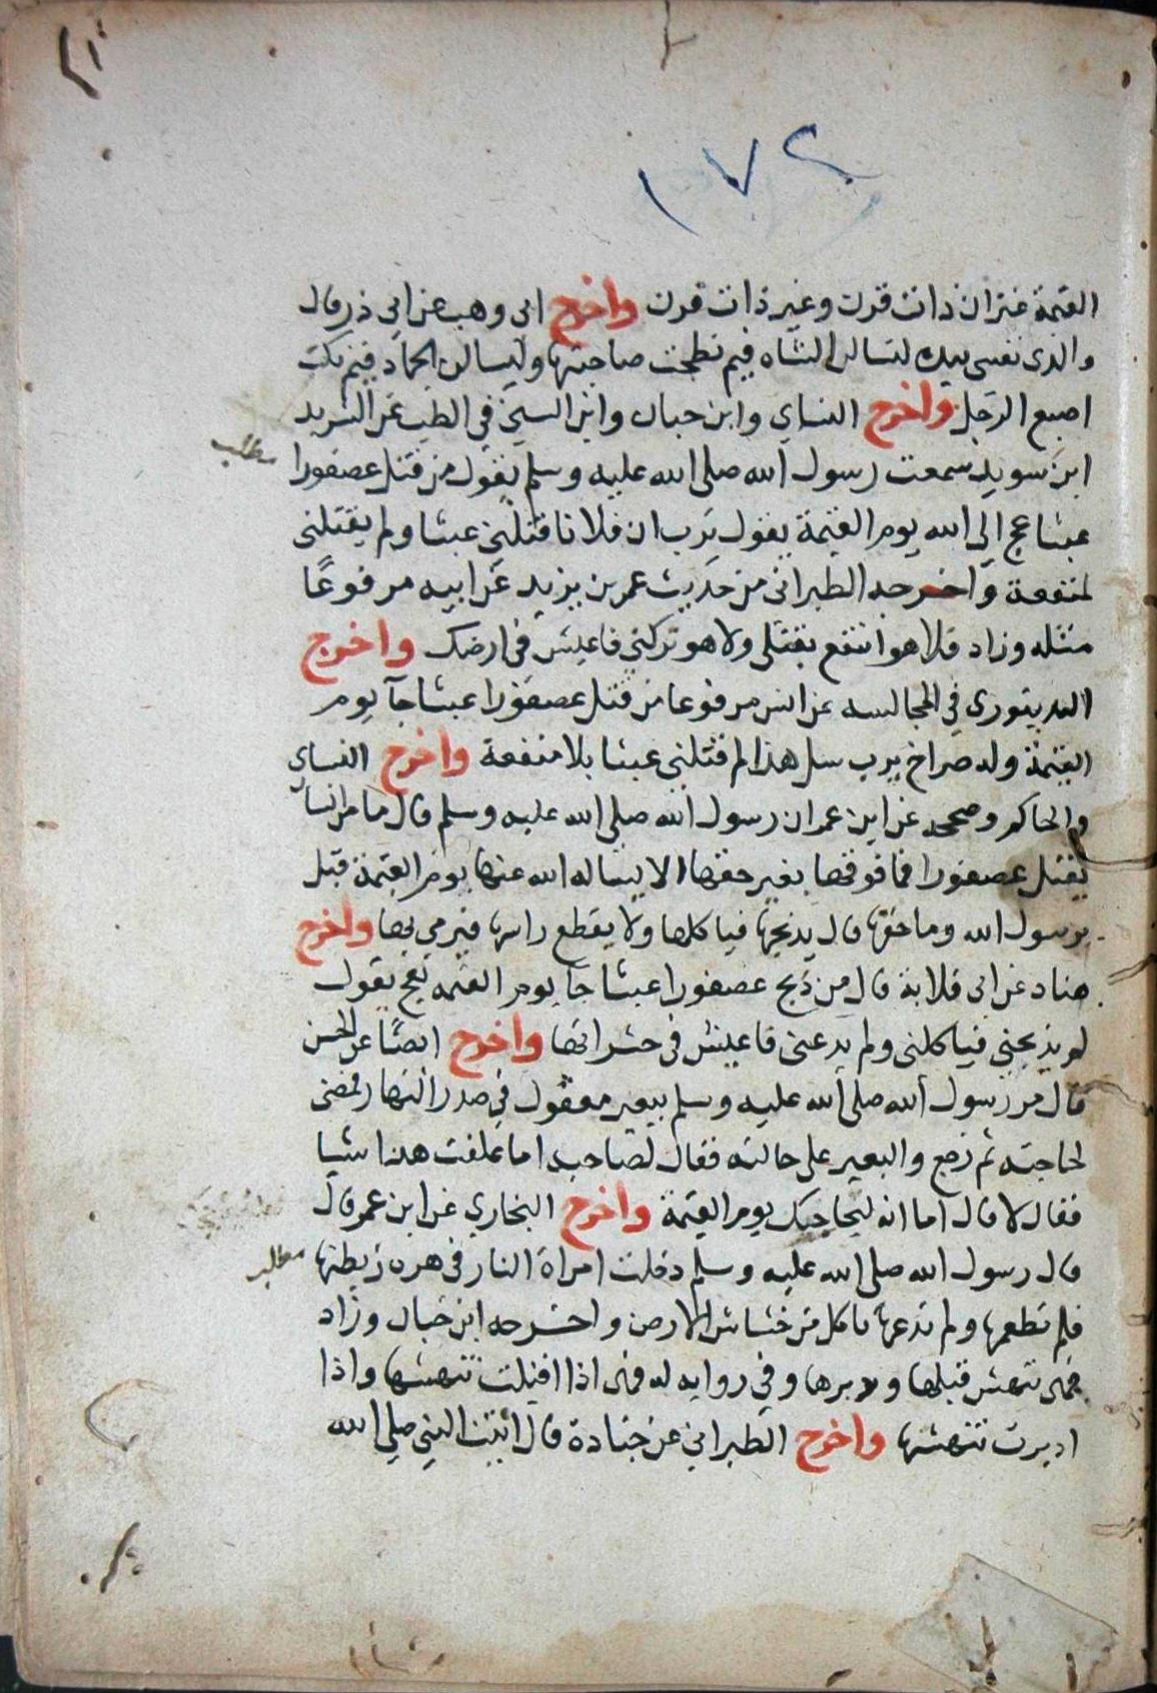 ١٧٢
القيمة عنزان ذات قرن وغير ذات قرن واخرج ابن وهب عن ابي ذر قال
والذى نفسى بيده لتسالن الشاه فيم نطحت صاحبتها وليسالن الجماد فيم نكت
اصبع الرجل واخرج النساي وابن حبان وابن السنى في الطب عن الشريد
ابن سويد سمعت رسول الله صلى الله عليه وسلم يقول من قتل عصفورا
مطلب
عبثا عج الى الله يوم القيمة يقول يرب ان فلانا قتلني عبثا ولم يقتلنى
لمنفعة واخرجه الطبرانى من حديث عمر بن يزيد عن ابيه مرفوعًا
مثله وزاد فلا هو انتفع بقتلى ولا هو تركني فاعيش فى ارضك واخرج
الدينورى في المجالسه عن انس مرفوعا من قتل عصفورا عبثا جآ يوم
القيمة وله صراخ يرب سل هذا لم قتلنى عبثا بلا منفعة واخرج النساى
والحاكم وصححه عن ابن عمر ان رسول الله صلى الله عليه وسلم قال ما من انسان
يقتل عصفورا فما فوقها بغير حقها الا يساله الله عنها يوم القيمة قيل
يرسول الله وما حقها قال يذبحها فياكلها ولا يقطع راسها فيرمي بها واخرج
هناد عن ابى قلابة قال من ذبح عصفورا عبثا جا يوم القيمه يعج يقول
لم يذبحنى فياكلنى ولم يدعنى فاعيش فى حشراتها واخرج ايضًا عن الحسن
قال مر رسول الله صلى الله عليه وسلم ببعير معقول في صدر النهار فمضى
لحاجته ثم رجع والبعير على حالته فقال لصاحبه اما علفت هذا شيا
فقال لا قال اما انه ليحاجك يوم القيمة واخرج البخاري عن ابن عمر قال
قال رسول الله صلى الله عليه وسلم دخلت امراة النار فى هره ربطتها
مطلب
فلم تطعمها ولم تدعها تاكل من خشاش الارض واخرجه ابن حبان وزاد
فهى تنهش قبلها ودبرها وفي روايه له فهى اذا اقبلت تنهشها واذا
ادبرت تنهشها واخرج الطبراني عن جنادة قال اتيت النبي صلى الله